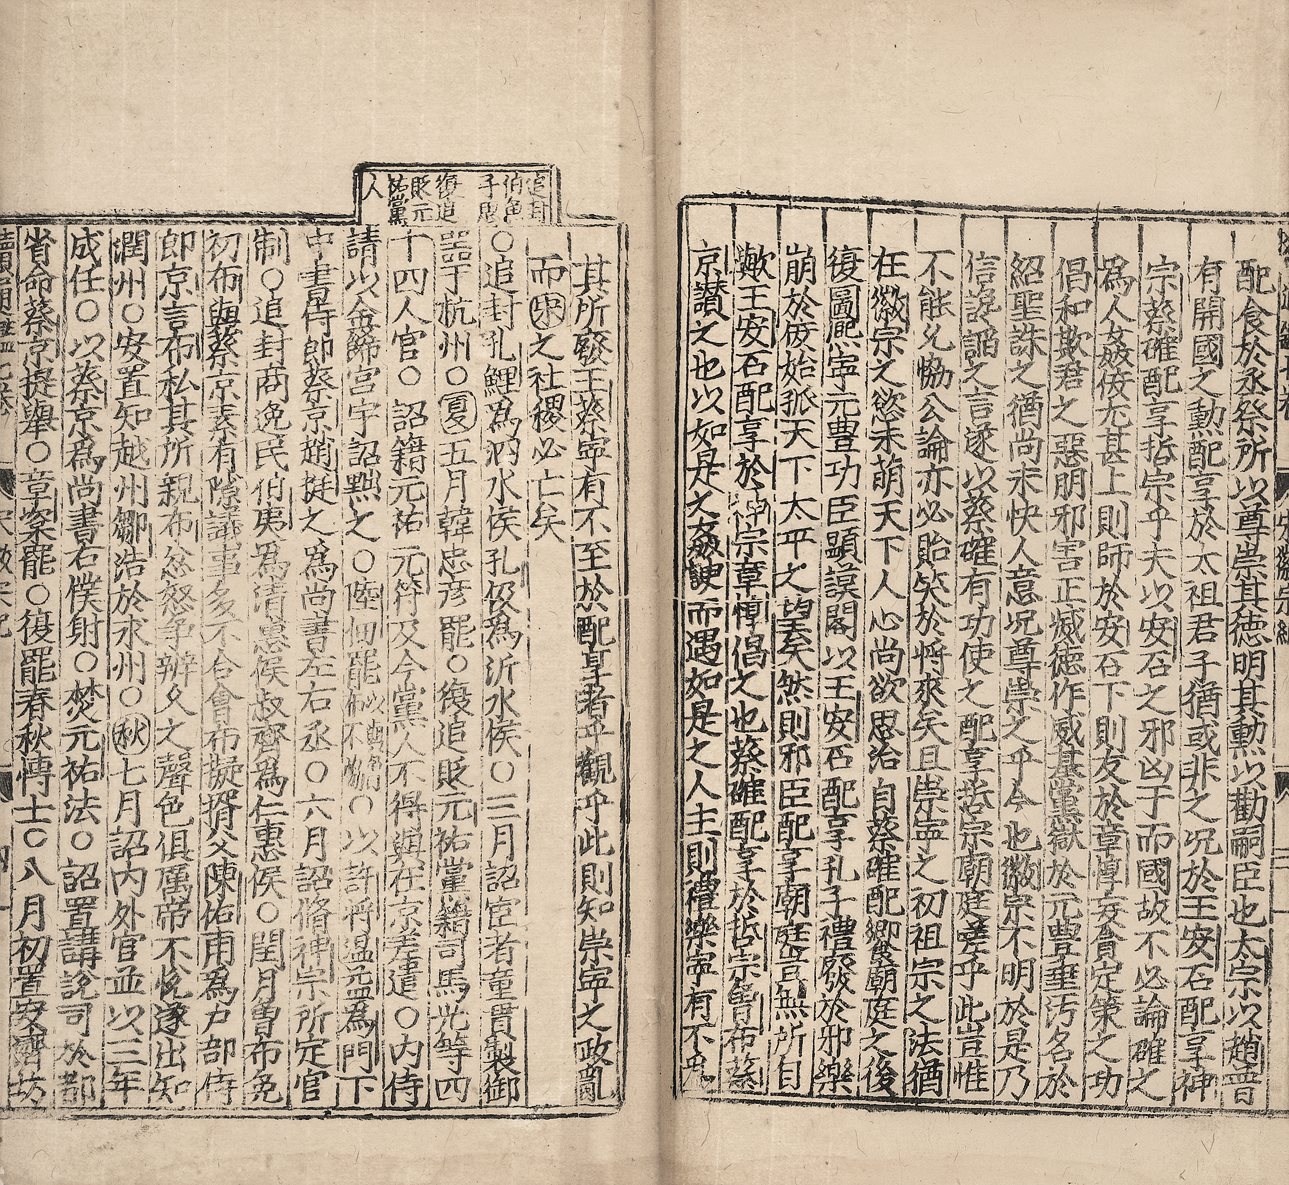 配食於丞祭所以尊崇其德明其勳以勸嗣臣也太宗以趙晋
有開國之勳配享於太祖君子猶或非之況於王安石配享神
宗蔡確配享指宗乎夫以安石之邪凶于而國故不必論確之
爲人姦佞尤甚上則師於安石下則友於章惇妄貪定策之功
倡和欺君之惡朋邪害正滅德作威基黨獄於元豊垂汚名於
紹聖誅之猶尚未快人意況尊崇之乎今也徽宗不明於是乃
信說謟之言遂以蔡確有功使之配享哲宗廟庭差乎此豈惟
不能允恊公論亦必貽笑於將來矣且崇寧之初祖宗之法猶
在徽宗之慾未萌天下人心尚欲思治自蔡確配饗廟庭之後
復圖熈寧元豊功臣顯謨閣以王安石配享孔子禮廢於邪樂
崩於佞始孤天下太平之望矣然則邪臣配享廟庭豈無所自
歟王安石配享於神宗章惇倡之也蔡確配享於哲宗曾布蔡
京讃之也以如是之姦諛而遇如是之人主則禮樂寧有不亂
其所廢王蔡寧有不至於配享者乎觀乎此則知崇寧之政亂
而宋之社稷必亡矣
追封
伯魚
子思
復追
貶元
祐黨
人
○追封孔鯉爲泗水侯孔伋爲沂水侯○三月詔宦者童貫製御
噐于杭州○夏五月韓忠彦罷○復追貶元祐黨籍司馬光等四
十四人官○詔籍元祐元符及今黨人不得與在京差遣○内侍
請以金飾宮宇詔黜之○陸佃罷○以許將温益爲門下
中書侍郎蔡京趙挺之爲尚書左右丞○六月詔脩神宗所定官
制○追封商逸民伯夷爲清惠侯叔齊爲仁惠侯○閏月曾布免
初布與蔡京素有隙議事多不合會布擬壻父陳佑甫爲户部侍
郎京言布私其所親布忿怒争辨久之聲色俱厲帝不悅遂出知
潤州○安置知越州鄒浩於永州○秋七月詔内外官並以三年
成任○以蔡京爲尚書右僕射○焚元祐法○詔置講說司於都
省命蔡京提舉○章楶罷○復罷春秋愽士○八月初置安濟坊